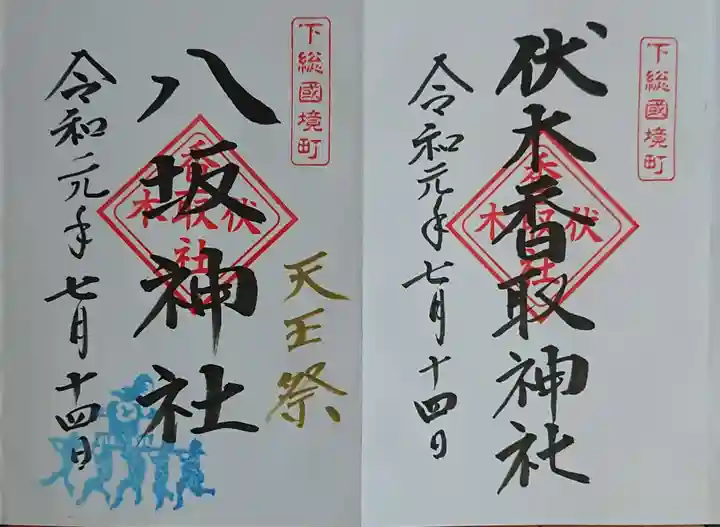 下総國境町
伏木香取神社
令和元年七月十四日
下総國境町
八坂神社
天王祭
令和元年七月十四日
伏木
香取社